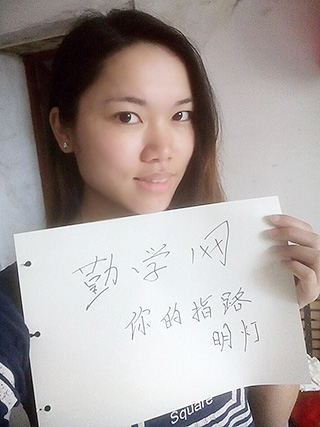 勤学网
你的指路
明灯
Square